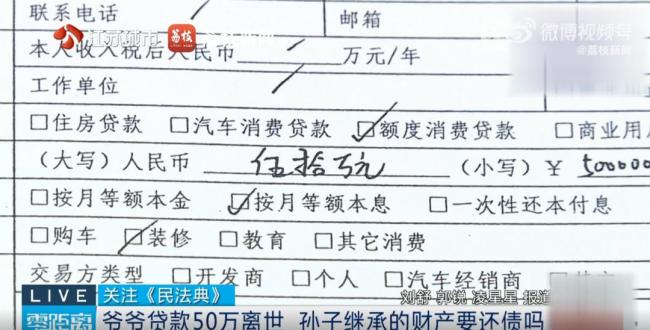 联系电话 邮箱
江苏城市 荔枝
微博视频号
@荔枝新闻
本人收入税后人民币 万元/年
工作单位
□住房贷款 □汽车消费贷款 ☑额度消费贷款 □商业用
（大写）人民币 伍拾万元 （小写）¥ 500000
□按月等额本金 ☑按月等额本息 □一次性还本付息
□购车 ☑装修 □教育 □其它消费
交易方类型 □开发商 □个人 □汽车经销商
LIVE 关注《民法典》 刘舒 郭锐 凌星星 报道
零距离 爷爷贷款50万离世 孙子继承的财产要还债吗